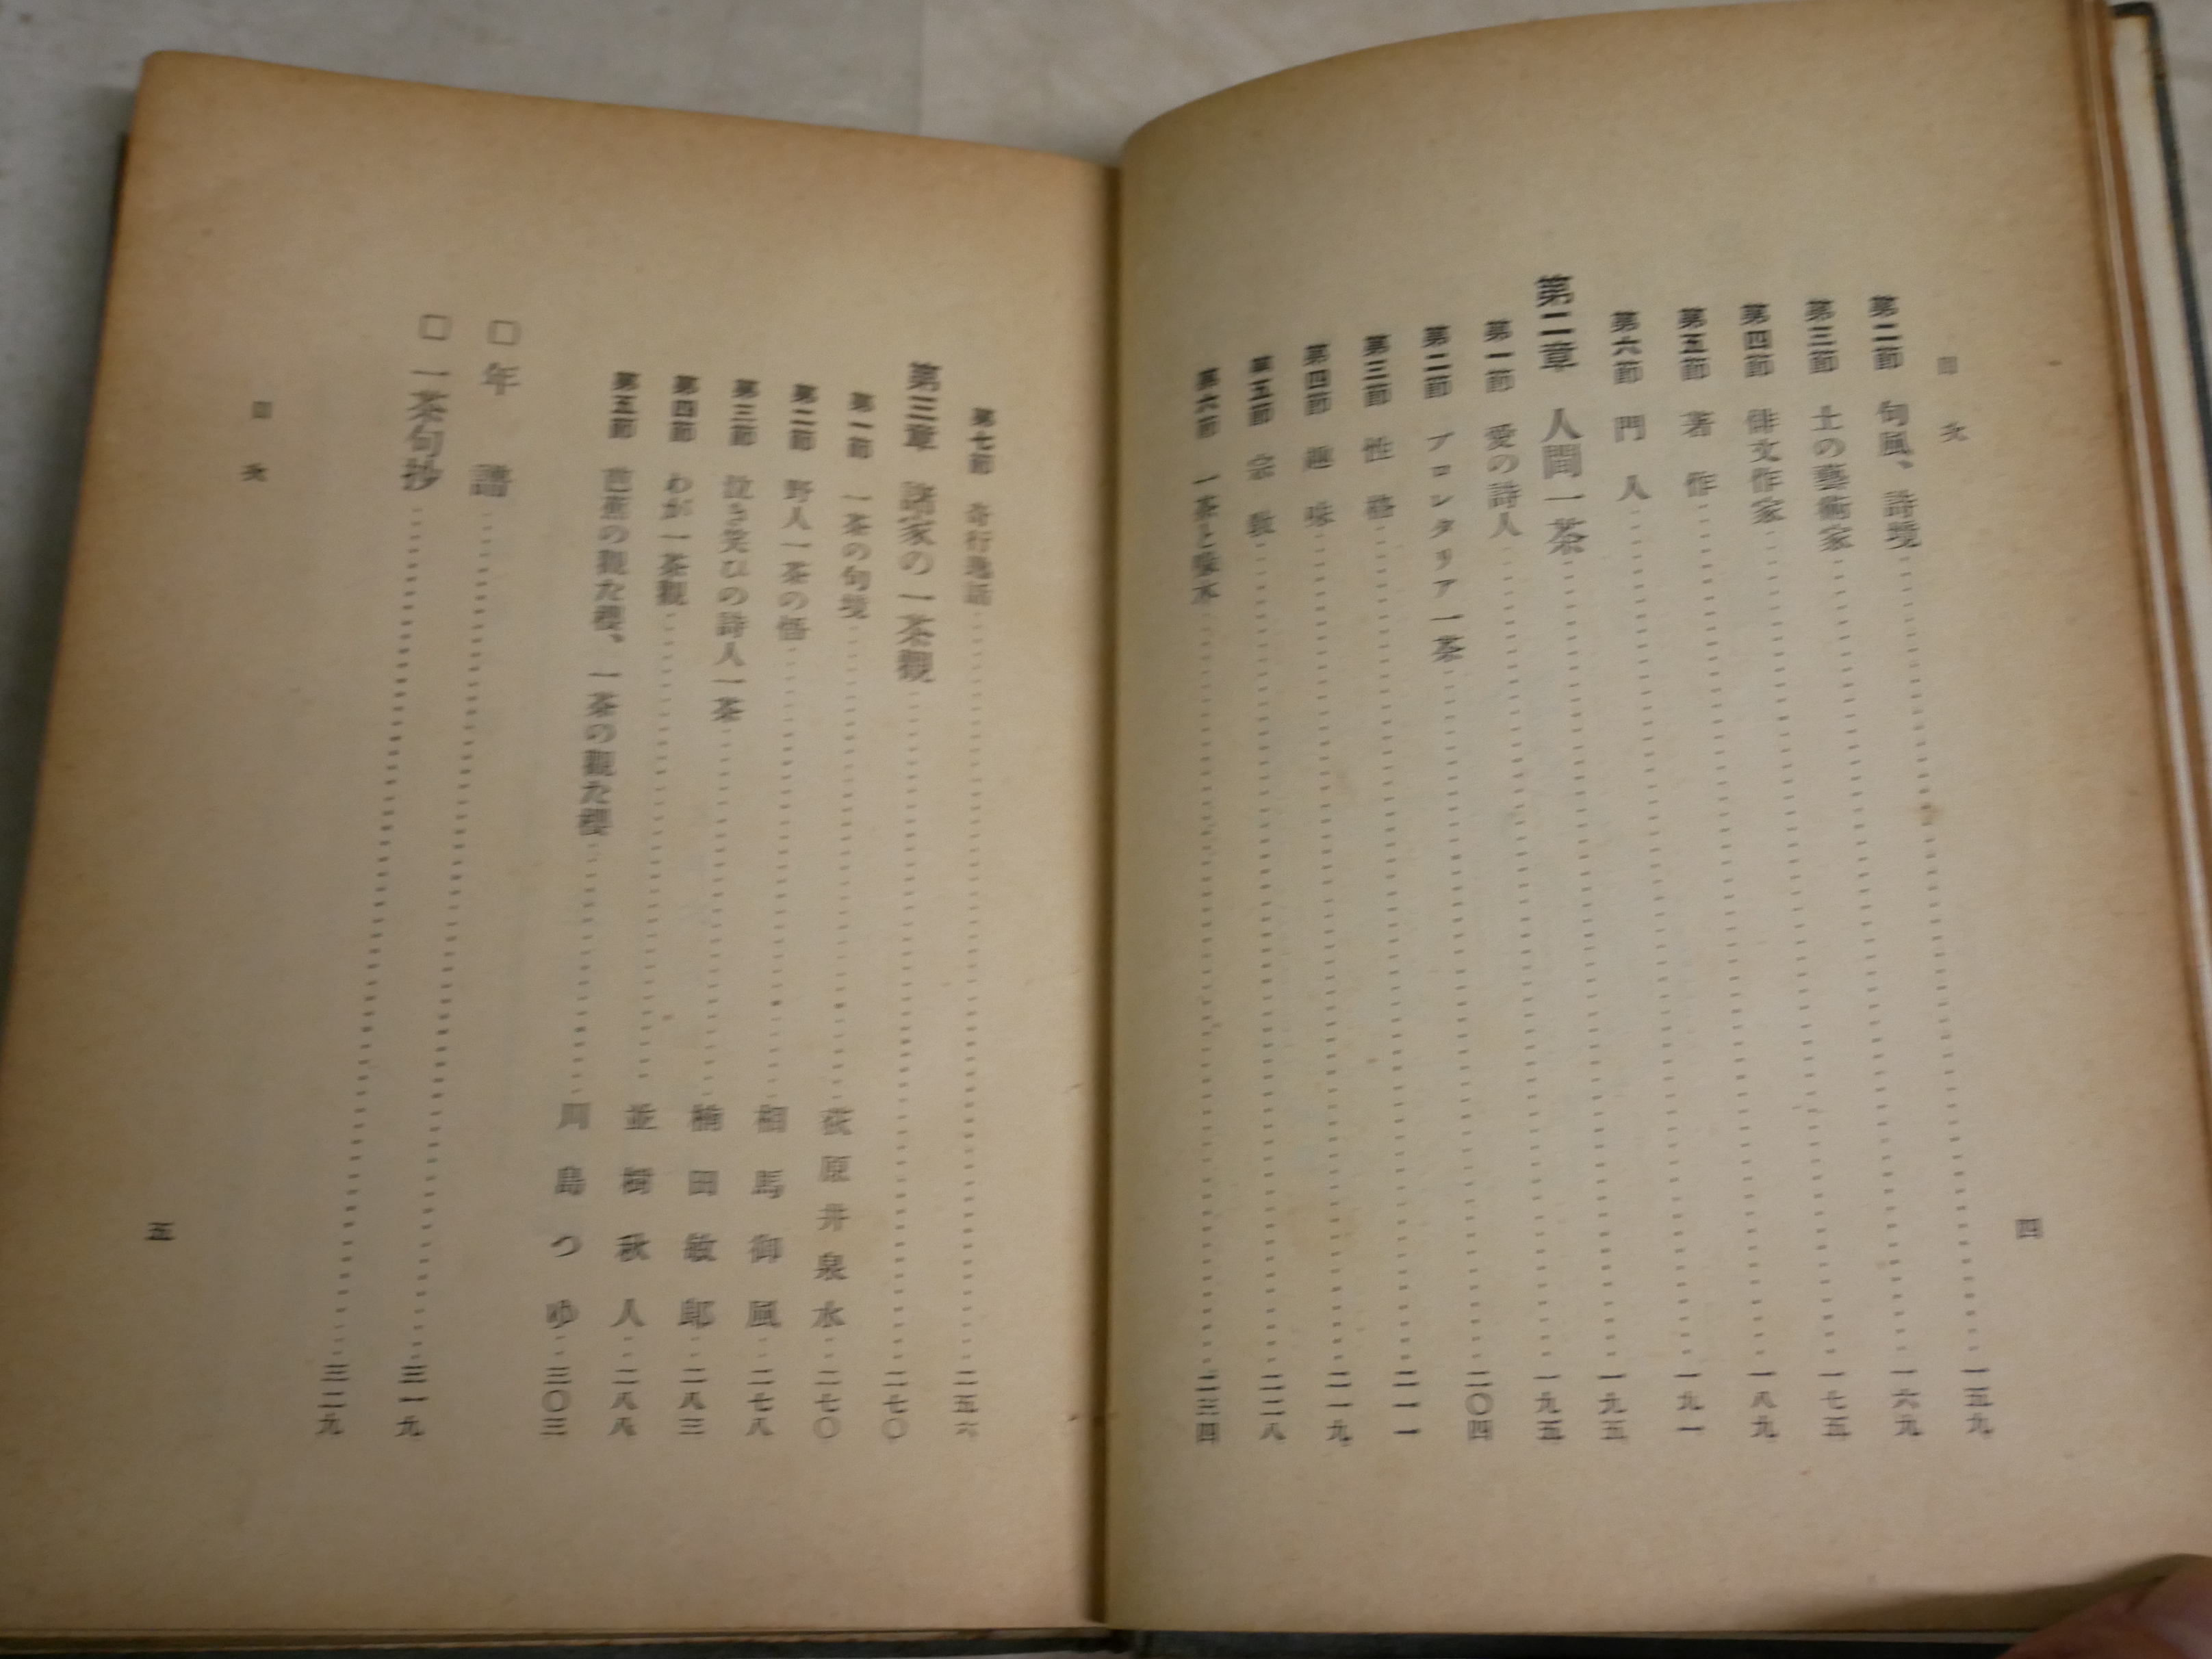 目次
四
第二節 句風、詩境 一五九
第三節 土の藝術家 一六九
第四節 俳文作家 一七五
第五節 著作 一八九
第六節 門人 一九一
第二章 人間一茶 一九五
第一節 愛の詩人 一九五
第二節 プロレタリア一茶 二〇四
第三節 性格 二一一
第四節 趣味 二一九
第五節 宗教 二二八
第六節 一茶と 二三四
第七節 奇行逸話 二五六
第三章 諸家の一茶觀 二七〇
第一節 一茶の句境 荻原井泉水 二七〇
第二節 野人一茶の悟 相馬御風 二七八
第三節 泣き笑ひの詩人一茶 楠田敏郎 二八三
第四節 わが一茶觀 並樹秋人 二八八
第五節 芭蕉の觀た櫻、一茶の觀た櫻 川島つゆ 三〇三
□年譜 三一九
□一茶句抄 三二九
目次
五